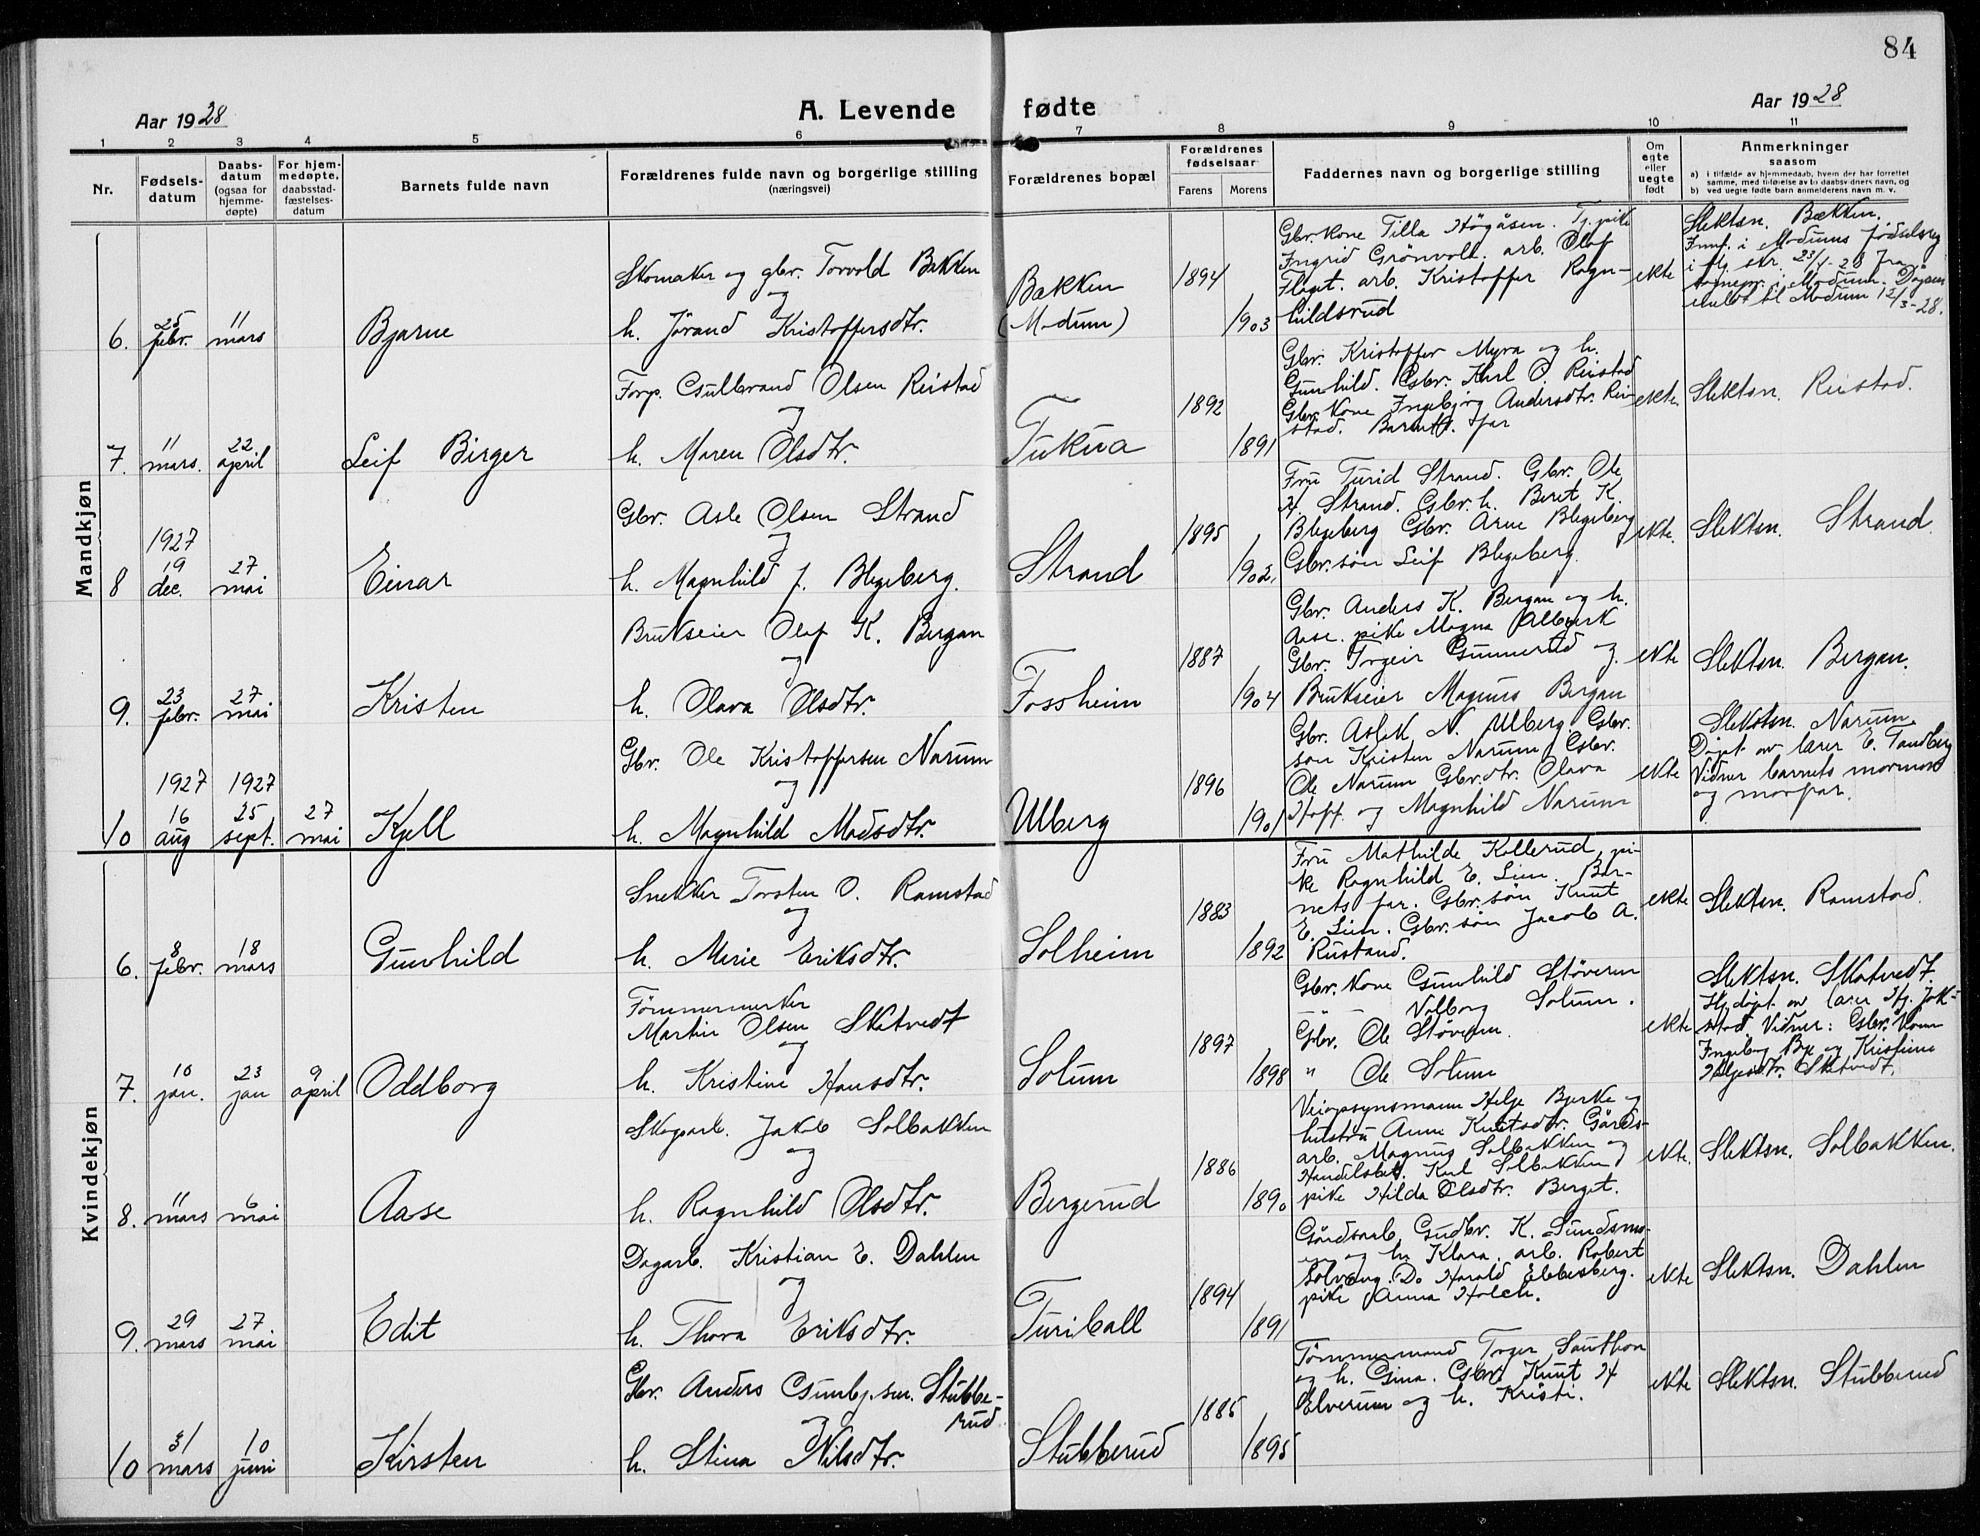 84
Aar 1928 A. Levende fødte Aar 1928
1 2 3 4 5 6 7 8 9 10 11
Nr.
Fødsels-
datum
Daabs-
datum
(ogsaa for
hjemme-
døpte)
For hjem-
medøpte,
daabsstad-
fæstelses-
datum
Barnets fulde navn
Forældrenes fulde navn og borgerlige stilling
(næringsvei)
Forældrenes bopæl
Forældrenes
fødselsaar
Farens Morens
Faddernes navn og borgerlige stilling
Om
egte
eller
uegte
født
Anmerkninger
saasom
a) i tilfælde av hjemmedaab, hvem der har forrettet
samme, med tilføielse av to daabsvidners navn, og
b) ved uegte fødte barn anmelderens navn m. v.
Mandkjøn
6. 25 febr. 11 mars Bjarne
Skomaker og gbr. Torvald Bækken
og
h. Jørand Kristoffersdtr.
Bækken
(Modum)
1894 1903
Gbr. kone Tilla Høgåsen. Tj. pike
Ingrid Grønvold. arb. Olaf
Flaget. arb. Kristoffer Ragn-
hildsrud
ekte
Slektsn. Bækken.
Innf. i Modums fødselsreg
i flg. skr. 23/4-28 fra
sognepr. i Modum. Dåpen
meldt til Modum 12/3-28.
7. 11 mars. 22 april Leif Birger
Forp. Gulbrand Olsen Reistad
og
h. Maren Olsdtr.
Tukua
1892 1891
Gbr. Kristoffer Myra og h.
Gunhild. Gbr. Karl O. Reistad
Gbr. kone Ingebjørg Andersdtr. Rei-
stad. Barnets far
ekte.
Slektsn. Reistad.
8 1927 19 dec. 27 mai Einar
Gbr. Asle Olsen Strand
og
h. Magnhild f. Blegeberg.
Strand
1895 1902.
Fru Turid Strand. Gbr. Ole
H. Strand. Gbr. h. Beret K.
Blegeberg Gbr. Arne Blegeberg
Gbr. søn Leif Blegeberg.
ekte.
Slektsn. Strand
9. 23 febr. 27 mai Kristen
Brukseier Olaf K. Bergan
og
h. Olava Olsdtr.
Fossheim
1887 1904
Gbr. Anders K. Bergan og h.
Aase. pike Magna Albjerk
Gbr. Torgeir Gunnerud og
Brukseier Magnus Bergan
ekte
Slektsn. Bergan.
10 1927 16 aug 1927 25 sept. 27 mai Kjell
Gbr. Ole Kristoffersen Narum
og
h. Magnhild Madsdtr.
Ulberg
1896 1901
Gbr. Aslak N. Ulberg Gbr.
søn Kristen Narum Gbr.
Ole Narum Gbr. dtr. Olava
Hoff og Magnhild Narum
ekte
Slektsn. Narum.
Døpt av lærer E. Tandberg
Vidner barnets mormor
og morfar.
Kvindekjøn
6. 8 febr. 18 mars Gunhild
Snekker Torsten O. Ramstad
og
h. Merie Eriksdtr.
Solheim
1883 1892
Fru Mathilde Kollerud, pi-
ke Ragnhild E. Lien. Bar-
nets far. Gbr. søn Knut
E. Lien. Gbr. søn Jacob A.
Rustand.
ekte
Slektsn. Ramstad.
7. 10 jan. 23 jan 9 april Oddborg
Tømmermerker
Martin Olsen Skatvedt
og
h. Kristine Hansdtr.
Solum
1897 1898
Gbr. kone Gunhild Støveren
— " — Valborg Solum.
Gbr. Ole Støveren.
" Ole Solum
ekte
Slektsn. Skatvedt.
Hj. døpt av lærer Hj. Jok-
stad Vidner: Gbr. kone
Ingeborg Bye og Kristine
Helgesdtr. Skatvedt.
8. 11 mars 6 mai Aase
Skogsarb. Jakob Solbakken
og
h. Ragnhild Olsdtr.
Bergerud
1886 1890
Veiopsynsmann Helge Bjerke og
hustru Anne Knutsdtr. Gårds-
arb. Magnus Solbakken og
Handelsbet. Karl Solbakken
pike Hilda Olsdtr. Berget.
ekte.
Slektsn. Solbakken.
9. 29 mars 27 mai Edit
Dagarb. Kristian E. Dahlen
og
h. Thora Eriksdtr.
Turiball
1894 1891
Gårdsarb. Gudbr. K. Sundsmo-
en og h. Klara. arb. Robert
Solvang. Do Harald Ebbesberg.
pike Anna Holch.
ekte
Slektsn. Dahlen
10 31 mars 10 juni Kirsten
Gbr. Anders Gunbj.sen. Stubbe-
rud
og
h. Stina Nilsdtr.
Stubberud
1885 1895
Tømmermand Torger Sandhon
og h. Gina. Gbr. Knut H
Elverum og h. Kristi.
ekte
Slektsn. Stubberud